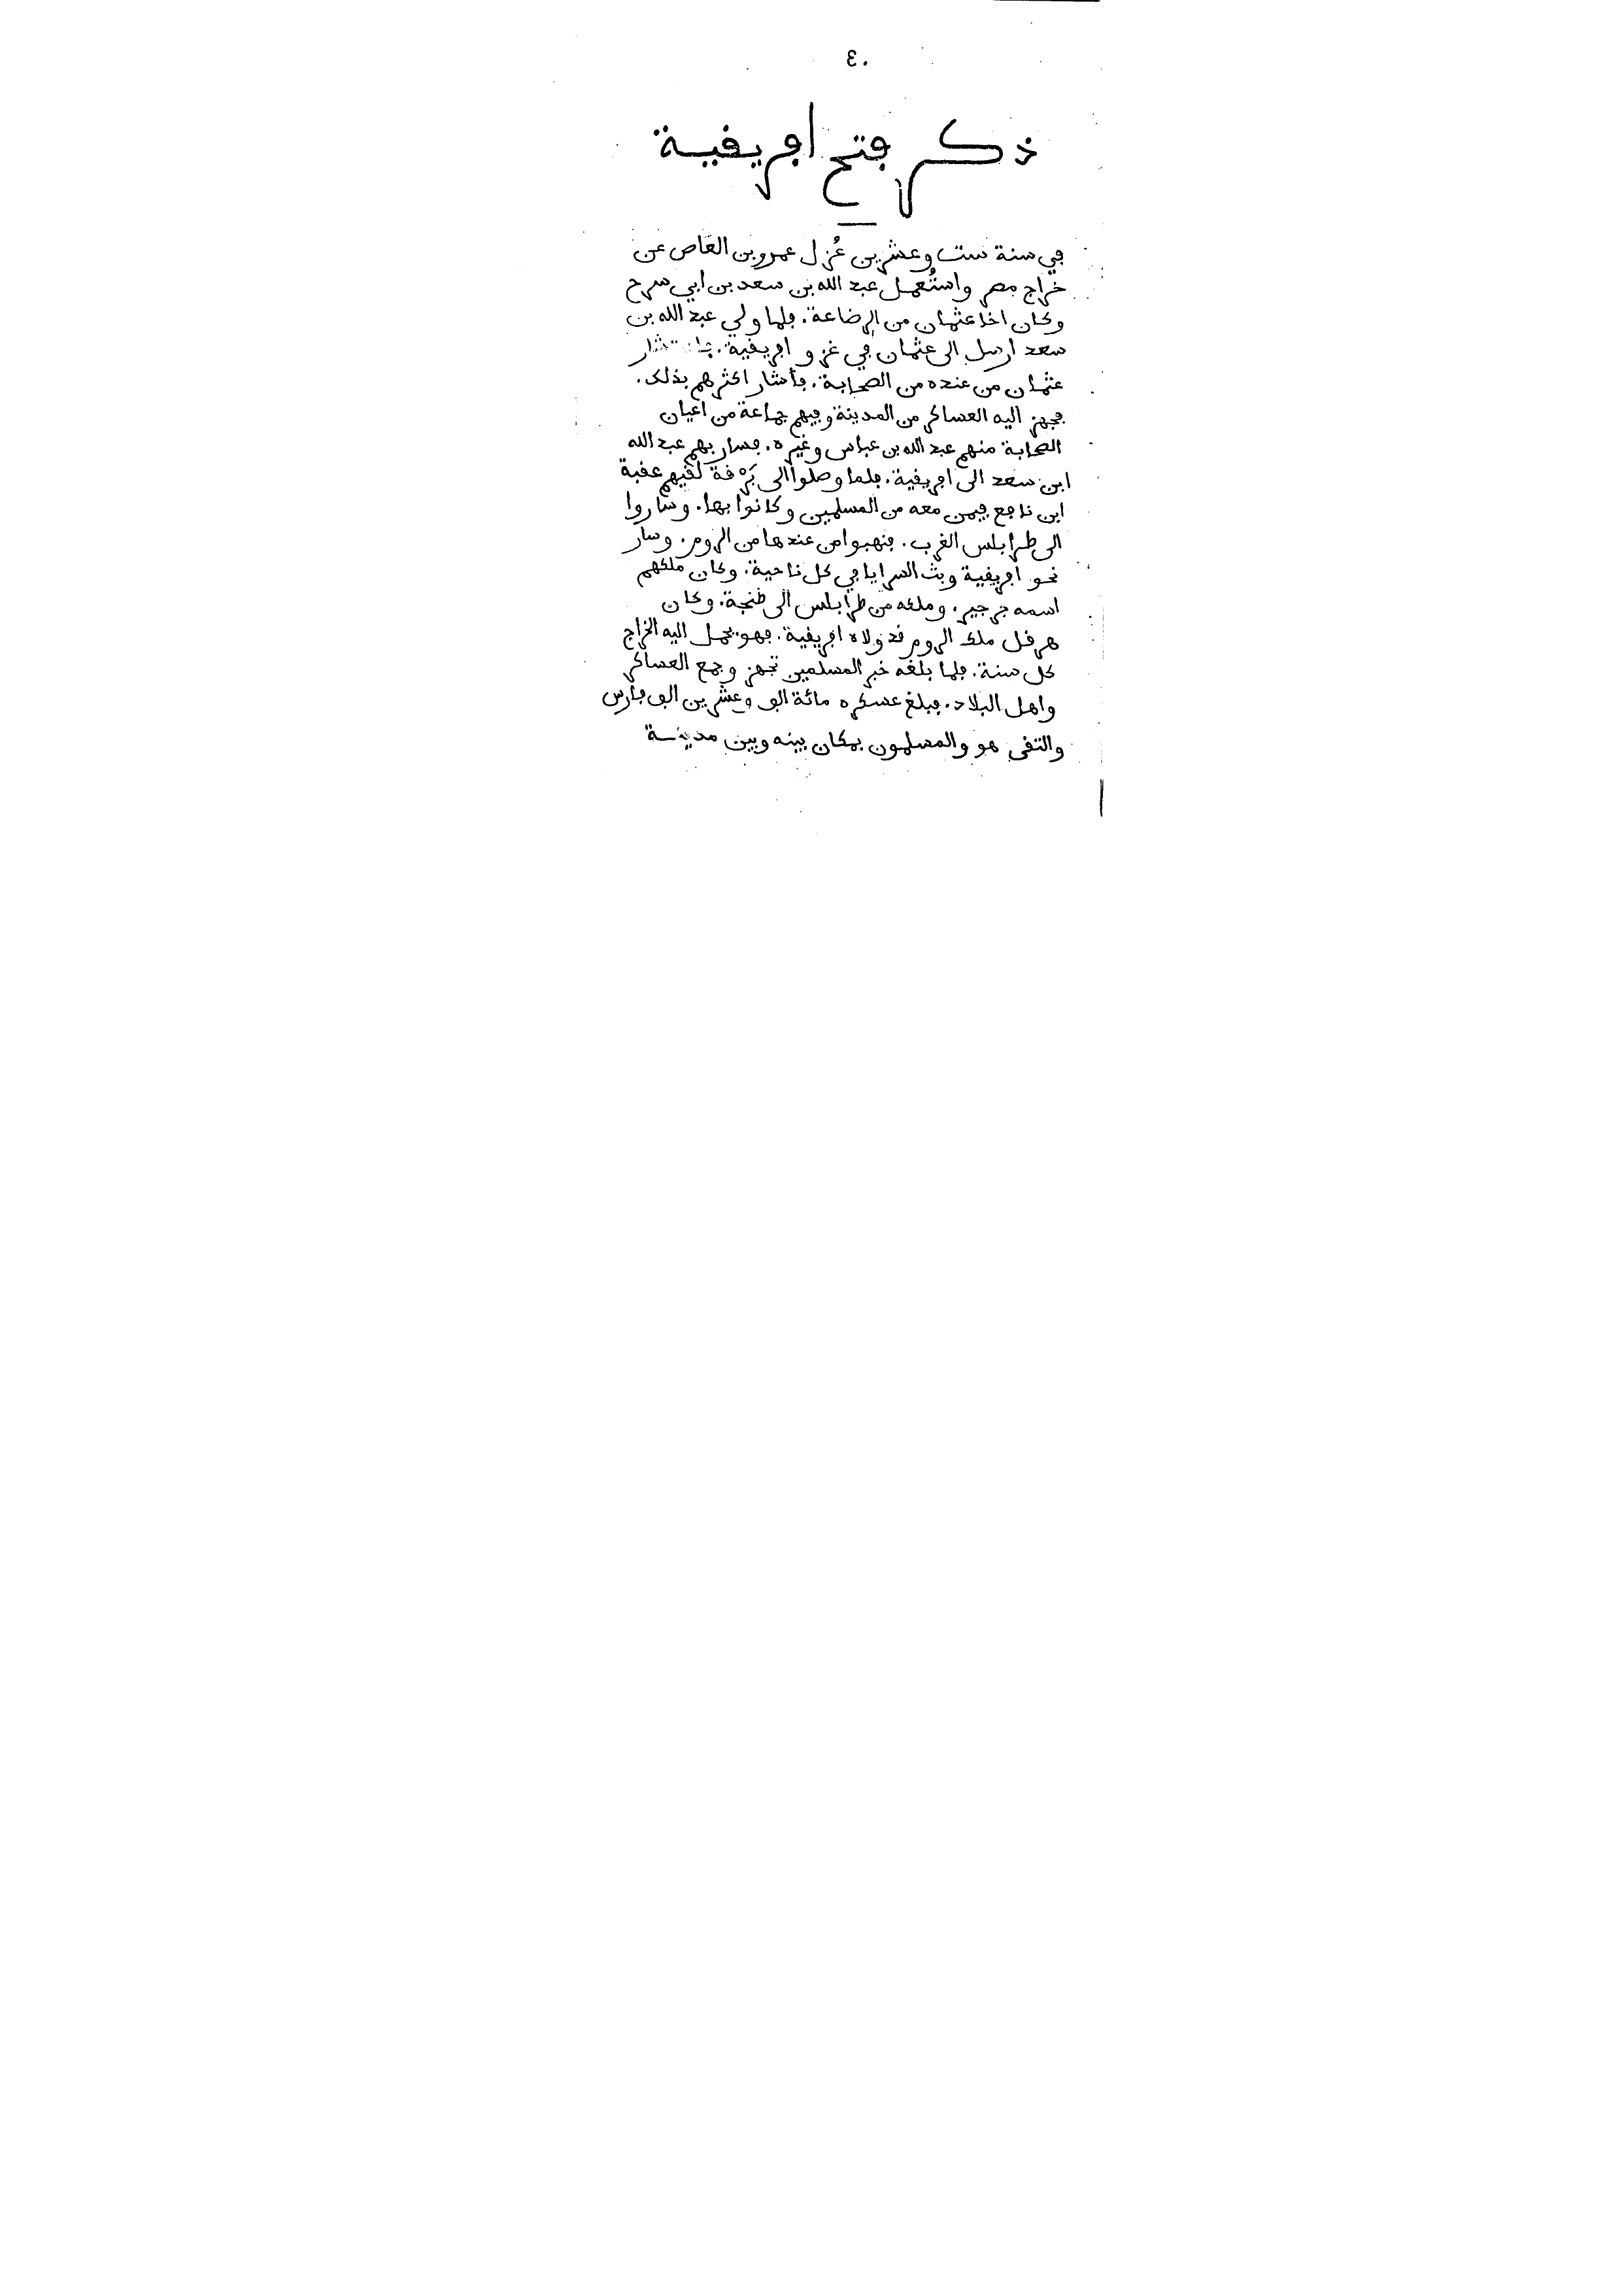 ٤٠
ذكر ڢتح اڢريڧية
ڢي سنة ست وعشرين عُزل عمرو بن العاص عن
خراج مصر واستُعمل عبد الله بن سعد بن ابي سرح
وكان اخا عثمان من الرضاعة. ڢلما ولي عبد الله بن
سعد ارسل الى عثمان ڢي غزو اڢريڧية. ڢاستشار
عثمان من عنده من الصحابة. ڢأشار اكثرهم بذلك.
ڢجهز اليه العساكر من المدينة وڢيهم جماعة من اعيان
الصحابة منهم عبد الله بن عباس وغيره. ڢسار بهم عبد الله
ابن سعد الى اڢريڧية. ڢلما وصلوا الى بَرْڧة لڧيهم عڧبة
ابن ناڢع ڢيمن معه من المسلمين وكانوا بها. وساروا
الى طرابلس الغرب. ڢنهبوا من عندها من الروم. وسار
نحو اڢريڧية وبث السرايا ڢي كل ناحية. وكان ملكهم
اسمه جرجير. وملكه من طرابلس الى طنجة. وكان
هرڧل ملك الروم ڧد ولاه اڢريڧية. ڢهو يحمل اليه الخراج
كل سنة. ڢلما بلغه خبر المسلمين تجهز وجمع العساكر
واهل البلاد. ڢبلغ عسكره مائة الڢ وعشرين الڢ ڢارس
والتڧى هو والمسلمون بمكان بينه وبين مدينة